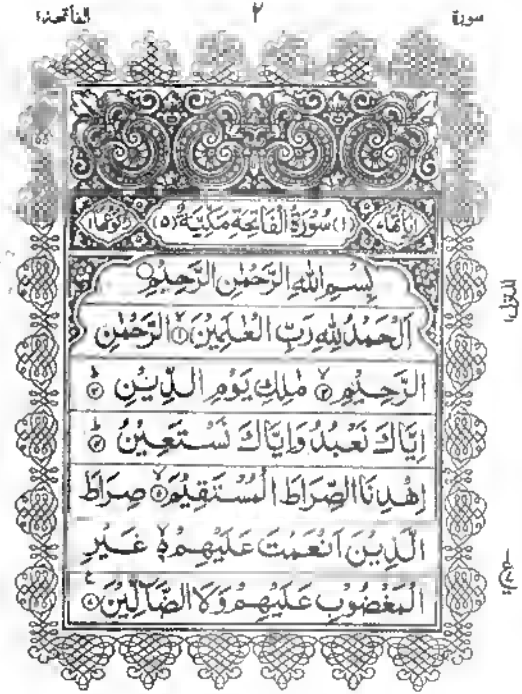 سورة ٢ الفاتحة١
اٰيَاتُهَا٧ (١) سُوْرَةُ الْفَاتِحَةِ مَكِّيَّةٌ (٥) رُكُوْعُهَا١
بِسْمِ اللّٰهِ الرَّحْمٰنِ الرَّحِيْمِ
اَلْحَمْدُ لِلّٰهِ رَبِّ الْعٰلَمِيْنَ ۙ﴿١﴾ الرَّحْمٰنِ
الرَّحِيْمِ ۙ﴿٢﴾ مٰلِكِ يَوْمِ الدِّيْنِ ؕ﴿٣﴾
اِيَّاكَ نَعْبُدُ وَاِيَّاكَ نَسْتَعِيْنُ ؕ﴿٤﴾
اِهْدِنَا الصِّرَاطَ الْمُسْتَقِيْمَ ۙ﴿٥﴾ صِرَاطَ
الَّذِيْنَ اَنْعَمْتَ عَلَيْهِمْ ۙ۬﴿٦﴾ غَيْرِ
الْمَغْضُوْبِ عَلَيْهِمْ وَلَا الضَّآلِّيْنَ ﴿٧﴾